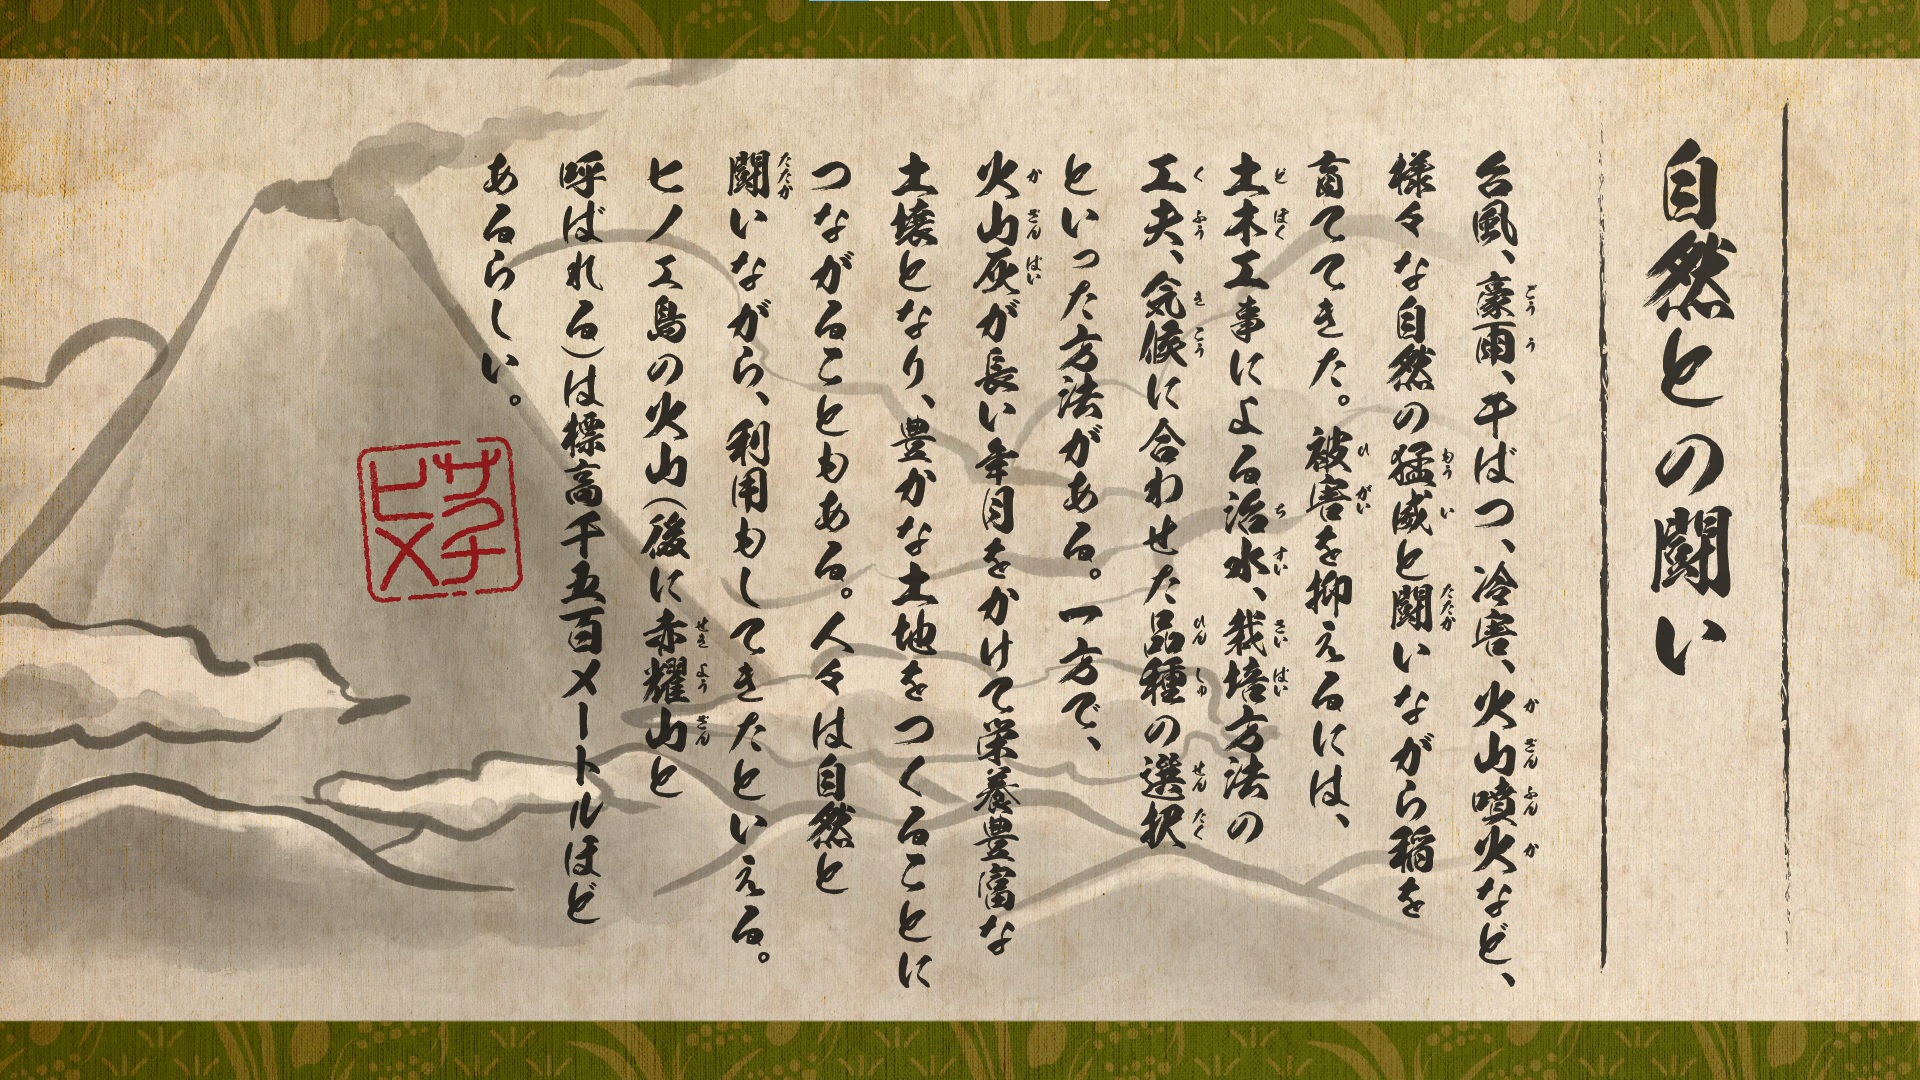 自然との闘い
台風、豪雨、干ばつ、冷害、火山噴火など、
様々な自然の猛威と闘いながら稲を
育ててきた。被害を抑えるには、
土木工事による治水、栽培方法の
工夫、気候に合わせた品種の選択
といった方法がある。一方で、
火山灰が長い年月をかけて栄養豊富な
土壌となり、豊かな土地をつくることに
つながることもある。人々は自然と
闘いながら、利用もしてきたといえる。
ヒノエ島の火山（後に赤耀山と
呼ばれる）は標高千五百メートルほど
あるらしい。
サクナ
ヒメ